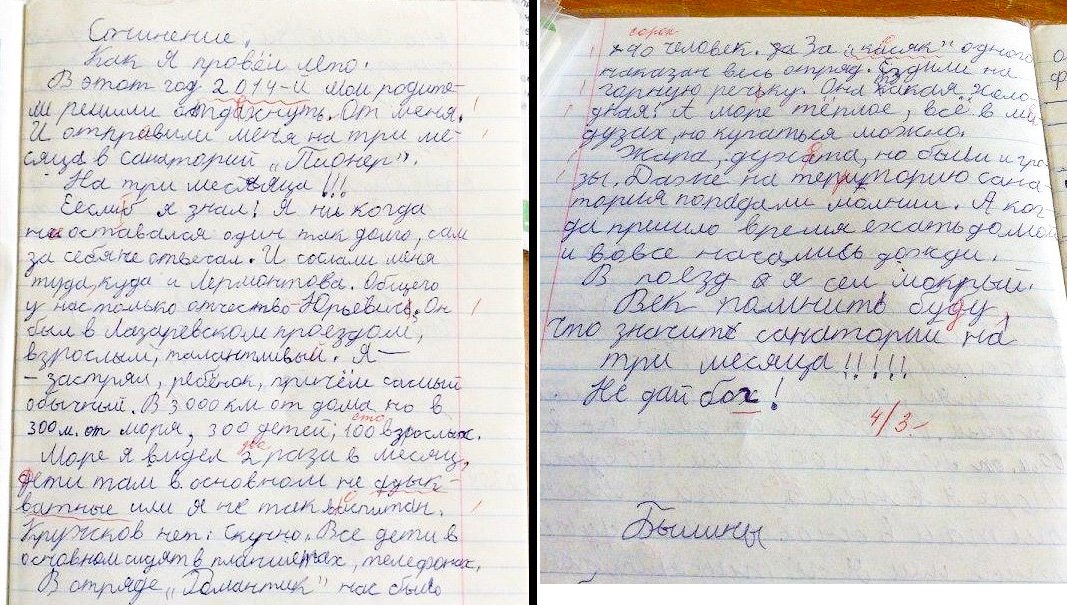 Сочинение.
Как Я провёл лето.
В этот год 2014-й мои родите-
ли решили отдахнуть. От меня.
И отправили меня на три ме-
сяца в санаторий „Пионер".
На три месяца!!!
Еесли б я знал! Я ни когда
не оставался один так долго, сам
за себя не отвечал. И сослали меня
туда, куда и Лермонтова. Общего
у нас только отчество - Юрьевич. Он
был в Лазаревском проездом,
взрослый, талантливый. Я —
- застрял, ребёнок, причём самый
обычный. В 3000 км от дома но в
300 м. от моря, 300 детей; 100 взрослых.
сто
Море я видел 2 раза в месяц,
два
дети там в основном не адык-
ватные или я не так воспитан.
Кружков нет. Скучно. Все дети в
основном сидят в планшетах, телефонах.
В отряде „Романтик" нас было
сорок
40 человек. За „косяк" одного
наказан весь отряд. Ездили на
горную речку. Она такая холо-
дная! А море тёплое, всё в ме-
дузах, но купаться можно.
Жара, духота, но были и гро-
зы. Даже на территорию сана-
тория попадали молнии. А ког-
да пришло время ехать домой
и вовсе начались дожди.
В поезд я сел мокрый.
Век помнить буду,
что значит санаторий на
три месяца!!!!!
Не дай бог!
4/3-
Былины